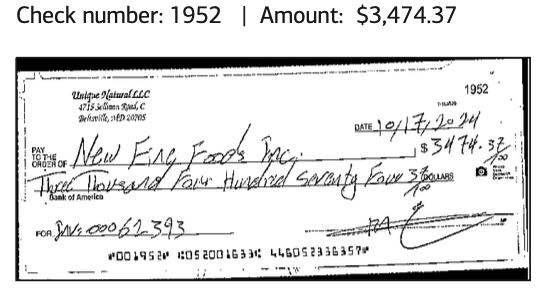 Check number: 1952 | Amount: $3,474.37
Unique Natural LLC
1952
4715 Sellman Road, C
Beltsville, MD 20705
DATE 10/17/2024
PAY TO THE ORDER OF New Fing Foods Inc. $3474.37/100
Three Thousand Four Hundred Seventy Four 37/100 DOLLARS
Bank of America
FOR INV: 00062393
⑈001952⑈ ⑆052001633⑆ 446052336357⑈